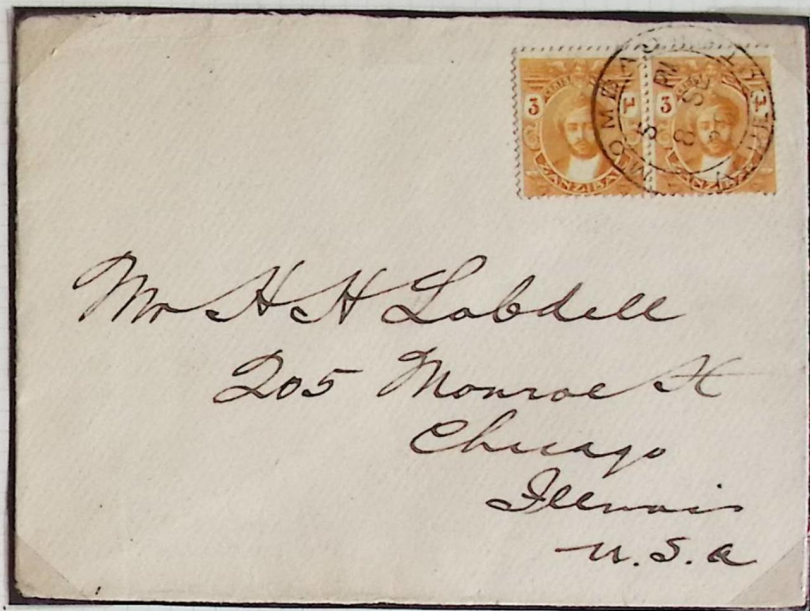 3 ٣ 3 ٣
ZANZIBAR ZANZIBAR
MOMBASA
5 PM
8 SP
Mr H H Lobdell
205 Monroe St
Chicago
Illinois
U.S.A